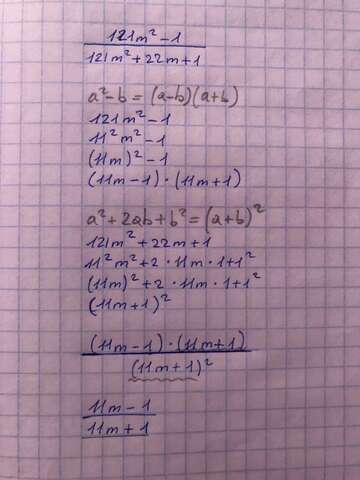 121m² - 1
121m² + 22m + 1
a² - b = (a-b)(a+b)
121m² - 1
11²m² - 1
(11m)² - 1
(11m - 1) · (11m + 1)
a² + 2ab + b² = (a+b)²
121m² + 22m + 1
11²m² + 2 · 11m · 1 + 1²
(11m)² + 2 · 11m · 1 + 1²
(11m + 1)²
(11m - 1) · (11m + 1)
(11m + 1)²
11m - 1
11m + 1